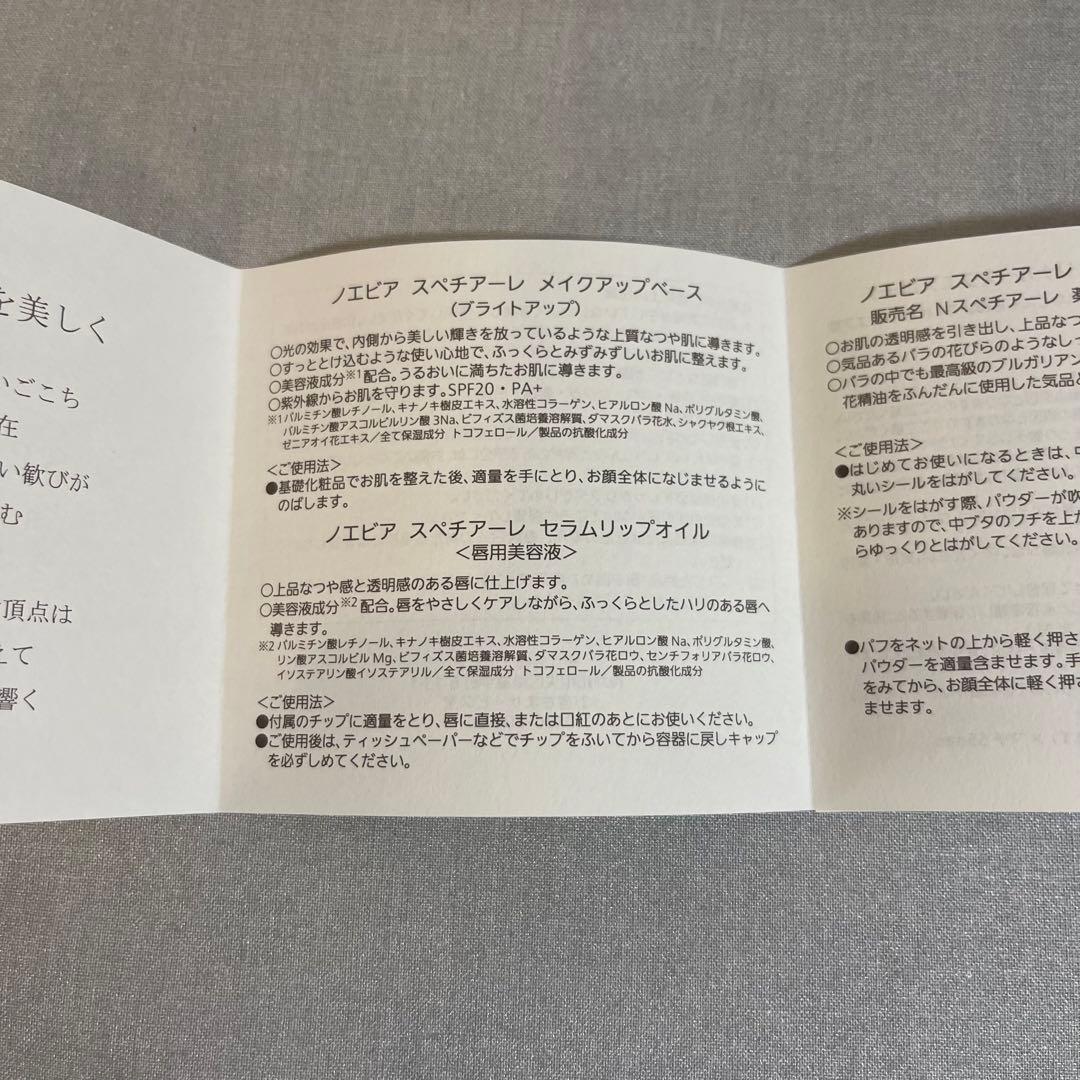 を美しく
いごこち
在
い歓びが
む
頂点は
えて
響く
ノエビア スペチアーレ メイクアップベース
(ブライトアップ)
○光の効果で、内側から美しい輝きを放っているような上質なつや肌に導きます。
○すっととけ込むような使い心地で、ふっくらとみずみずしいお肌に整えます。
○美容液成分※1配合。うるおいに満ちたお肌に導きます。
○紫外線からお肌を守ります。SPF20・PA+
※1 パルミチン酸レチノール、キナノキ樹皮エキス、水溶性コラーゲン、ヒアルロン酸 Na、ポリグルタミン酸、
パルミチン酸アスコルビルリン酸 3Na、ビフィズス菌培養溶解質、ダマスクバラ花水、シャクヤク根エキス、
ゼニアオイ花エキス/全て保湿成分 トコフェロール/製品の抗酸化成分
<ご使用法>
●基礎化粧品でお肌を整えた後、適量を手にとり、お顔全体になじませるように
のばします。
ノエビア スペチアーレ セラムリップオイル
<唇用美容液>
○上品なつや感と透明感のある唇に仕上げます。
○美容液成分※2配合。唇をやさしくケアしながら、ふっくらとしたハリのある唇へ
導きます。
※2 パルミチン酸レチノール、キナノキ樹皮エキス、水溶性コラーゲン、ヒアルロン酸 Na、ポリグルタミン酸、
リン酸アスコルビル Mg、ビフィズス菌培養溶解質、ダマスクバラ花ロウ、センチフォリアバラ花ロウ、
イソステアリン酸イソステアリル/全て保湿成分 トコフェロール/製品の抗酸化成分
<ご使用法>
●付属のチップに適量をとり、唇に直接、または口紅のあとにお使いください。
●ご使用後は、ティッシュペーパーなどでチップをふいてから容器に戻しキャップ
を必ずしめてください。
ノエビア スペチアーレ
販売名 Nスペチアーレ 薬
○お肌の透明感を引き出し、上品なつ
○気品あるバラの花びらのようなしっ
○バラの中でも最高級のブルガリアン
花精油をふんだんに使用した気品と
<ご使用法>
●はじめてお使いになるときは、中
丸いシールをはがしてください。
※シールをはがす際、パウダーが吹
ありますので、中ブタのフチを上か
らゆっくりとはがしてください。
●パフをネットの上から軽く押さ
パウダーを適量含ませます。手
をみてから、お顔全体に軽く押さ
ませます。